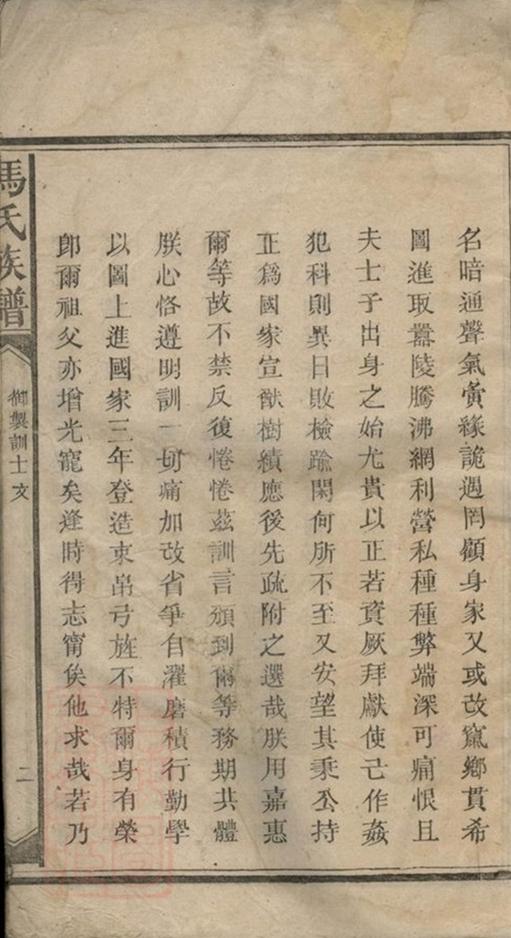 名暗通聲氣夤緣詭遇罔顧身家又或改竄鄉貫希
圖進取囂陵騰沸網利營私種種弊端深可痛恨且
夫士子出身之始尤貴以正若資厥拜獻使己作姦
犯科則異日敗檢踰閑何所不至又安望其秉公持
正爲國家宣猷樹績應後先疏附之選哉朕用嘉惠
爾等故不禁反復惓惓兹訓言頒到爾等務期共體
朕心恪遵明訓一切痛加改省爭自濯磨積行勤學
以圖上進國家三年登造束帛弓旌不特爾身有榮
卽爾祖父亦增光寵矣逢時得志甯俟他求哉若乃
馮氏族譜
御製訓士文
二